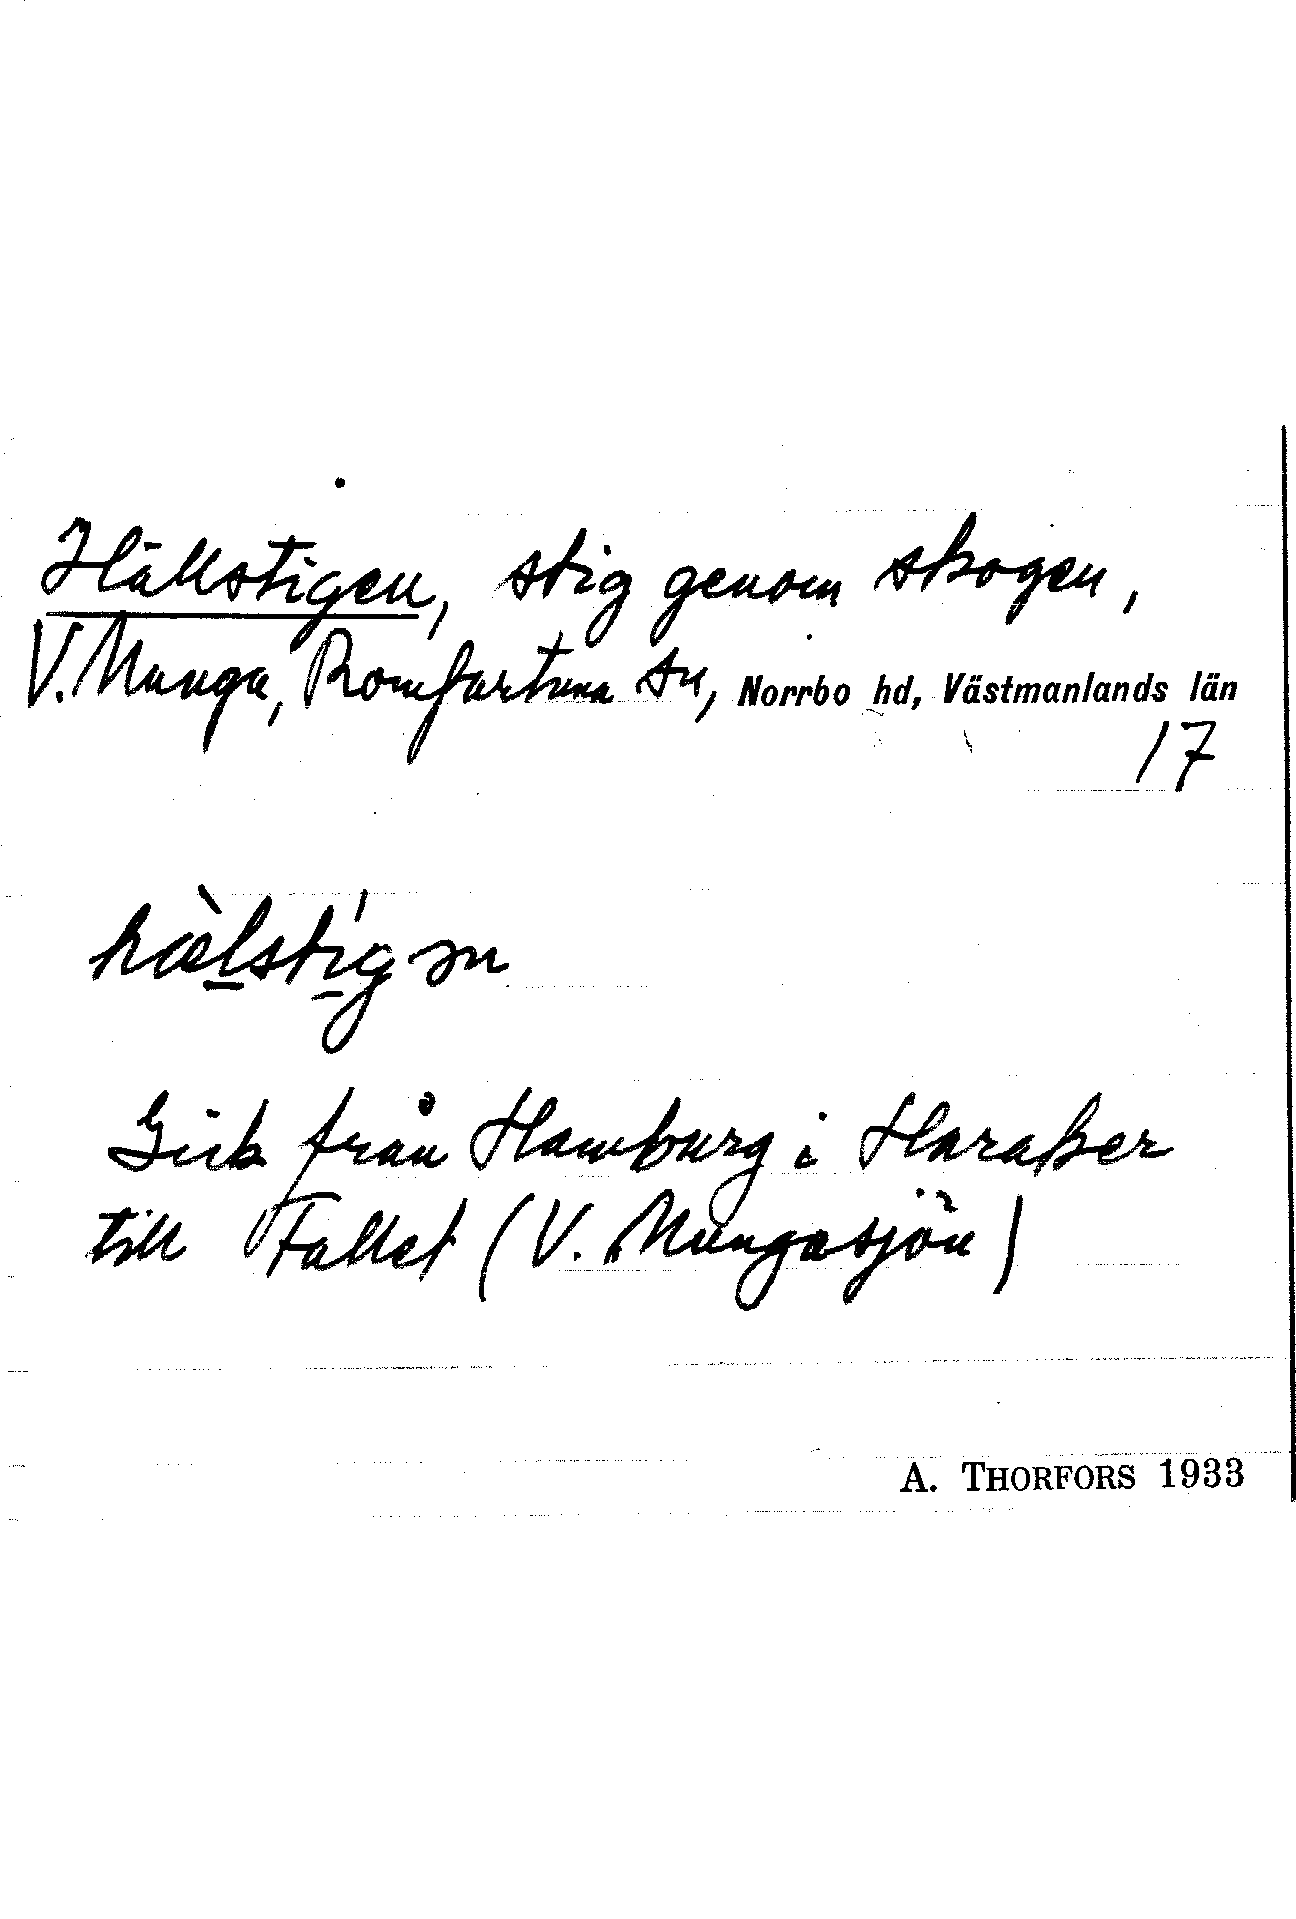 Hällstigen, stig genom skogen,
V. Munga, Romfartuna sn, Norrbo hd, Västmanlands län
17
hæ̀lstígən
Gick från Hamburg i Haraker
till Fallet (V. Mungasjön)
A. THORFORS 1933